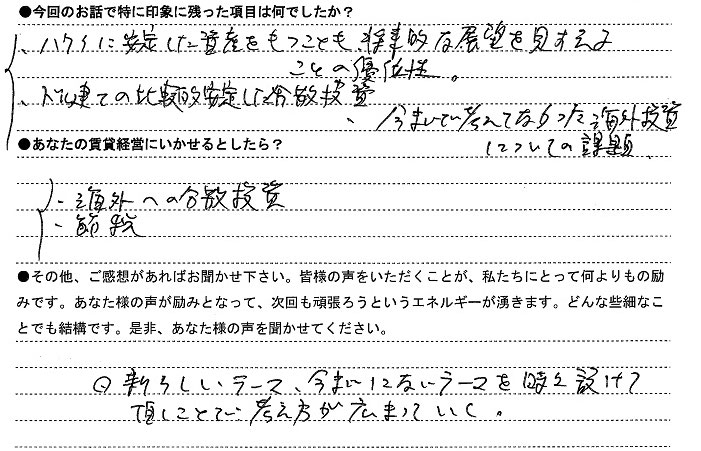 ●今回のお話で特に印象に残った項目は何でしたか?
、ハワイに安定した資産をもつことも、将来的な展望を見すえる
ことの優位性。
、ドル建ての比較的安定した分散投資
、今まで考えてなかった海外投資
についての課題、
●あなたの賃貸経営にいかせるとしたら?
、海外への分散投資
、節税
●その他、ご感想があればお聞かせ下さい。皆様の声をいただくことが、私たちにとって何よりもの励
みです。あなた様の声が励みとなって、次回も頑張ろうというエネルギーが湧きます。どんな些細なこ
とでも結構です。是非、あなた様の声を聞かせてください。
新らしいテーマ、今までにないテーマを時々設けて
頂くことで、考え方が広まっていく。